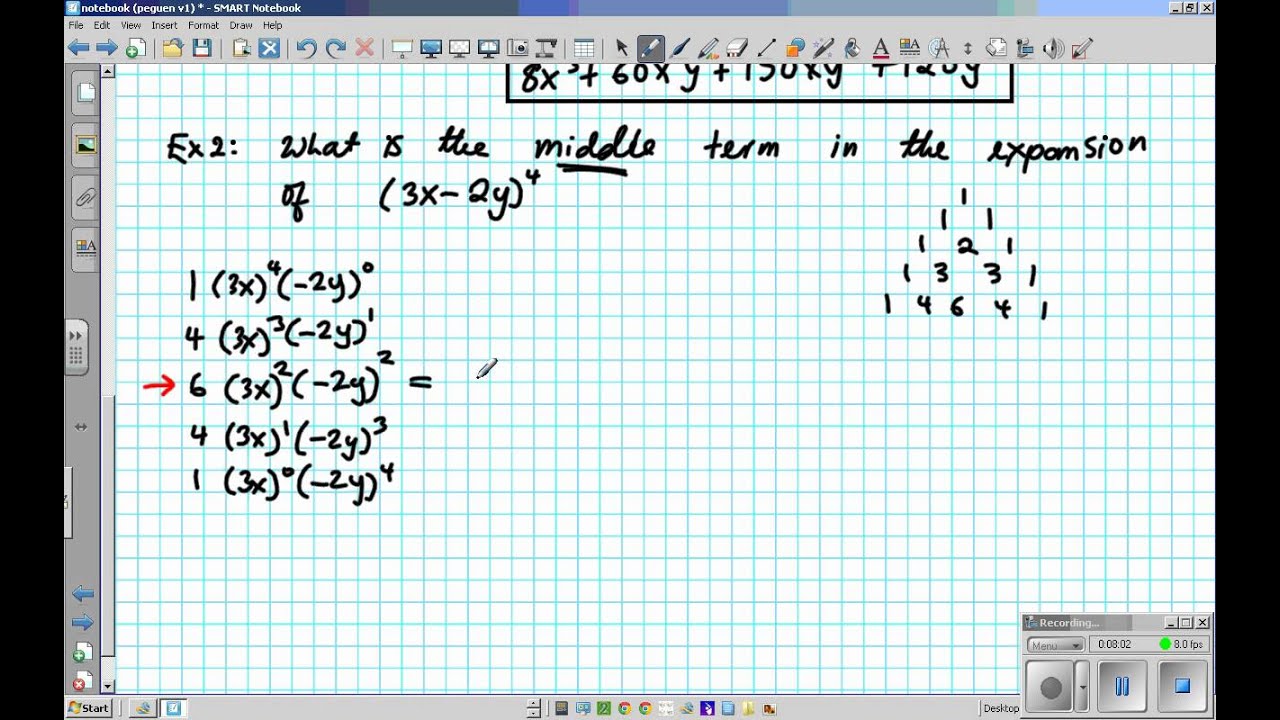 notebook (peguen v1) * - SMART Notebook
File Edit View Insert Format Draw Help
Ex 2: What is the middle term in the expansion
of (3x-2y)⁴
1
1 1
1 2 1
1 3 3 1
1 4 6 4 1
1 (3x)⁴(-2y)⁰
4 (3x)³(-2y)¹
→ 6 (3x)²(-2y)² =
4 (3x)¹(-2y)³
1 (3x)⁰(-2y)⁴
Recording...
Menu 0:08:02 8.0 fps
Start Desktop